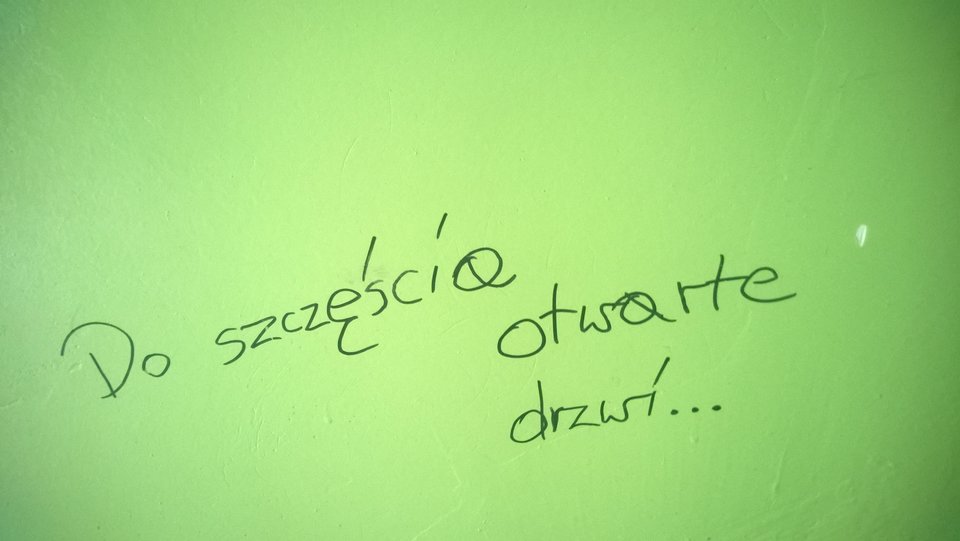 Do szczęścia
otwarte
drzwi...